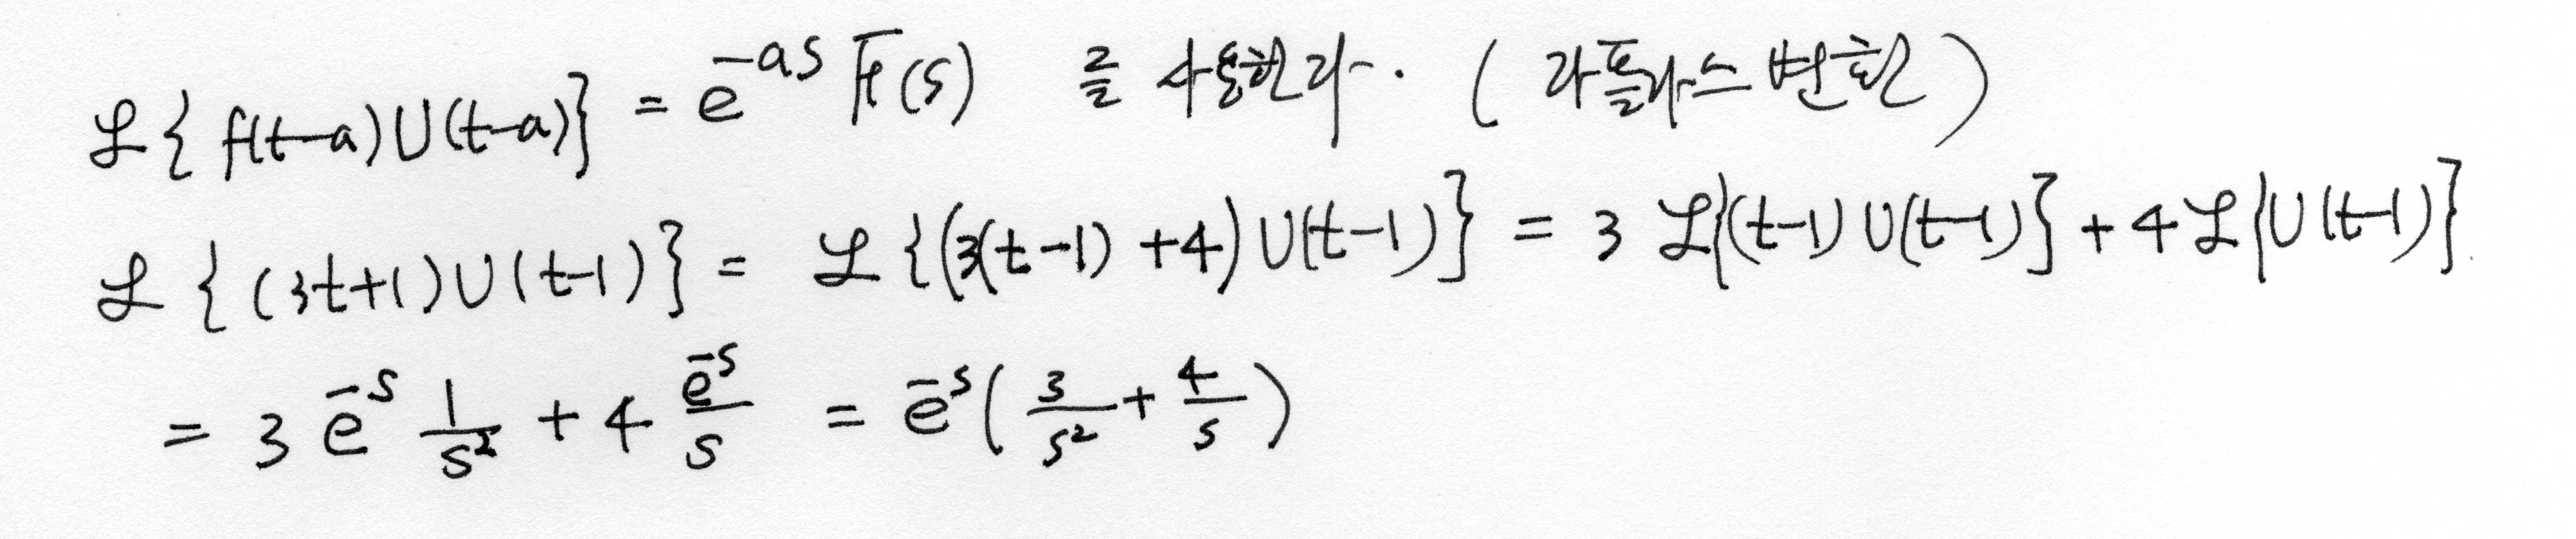 ℒ{f(t-a)U(t-a)} = e^{-as} F(s) 를 사용한다. (라플라스 변환)
ℒ{(3t+1)U(t-1)} = ℒ{(3(t-1)+4)U(t-1)} = 3ℒ{(t-1)U(t-1)} + 4ℒ{U(t-1)}.
= 3e^{-s} \frac{1}{s^2} + 4\frac{e^{-s}}{s} = e^{-s}(\frac{3}{s^2} + \frac{4}{s})